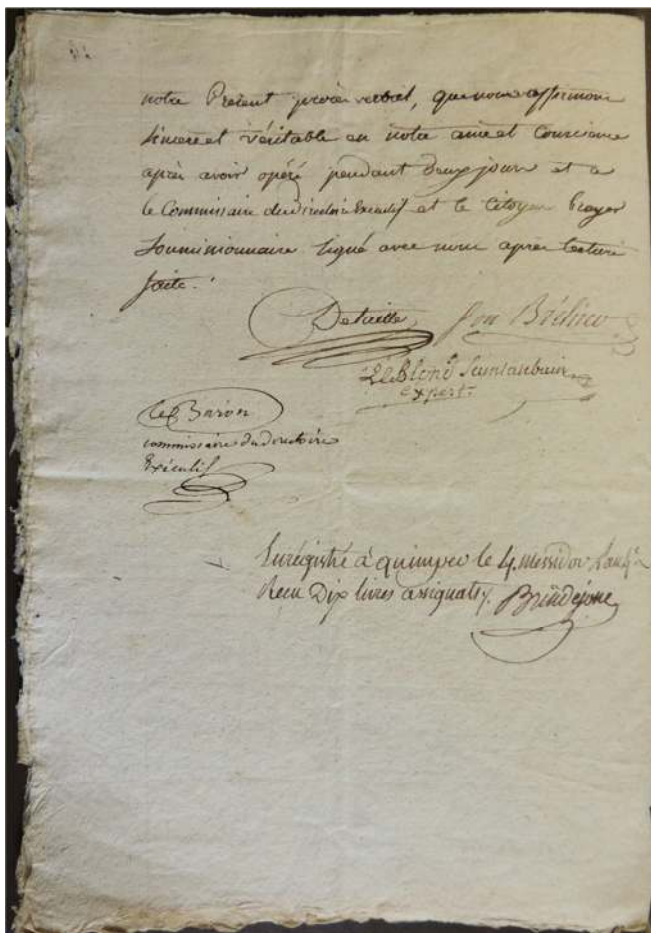 notre Present procès verbal, que nous affirmons
sincere et véritable en notre ame et Conscience
après avoir opéré pendant deux jour et a
le Commissaire du Directoire Executif et le Citoyen
Soumissionnaire signé avec nous après lecture
faite.
expert.
Le Baron
commissaire du Directoire
Exécutif
Enrégistré à quimper le 4. messidor
Recu Dix livres assignats